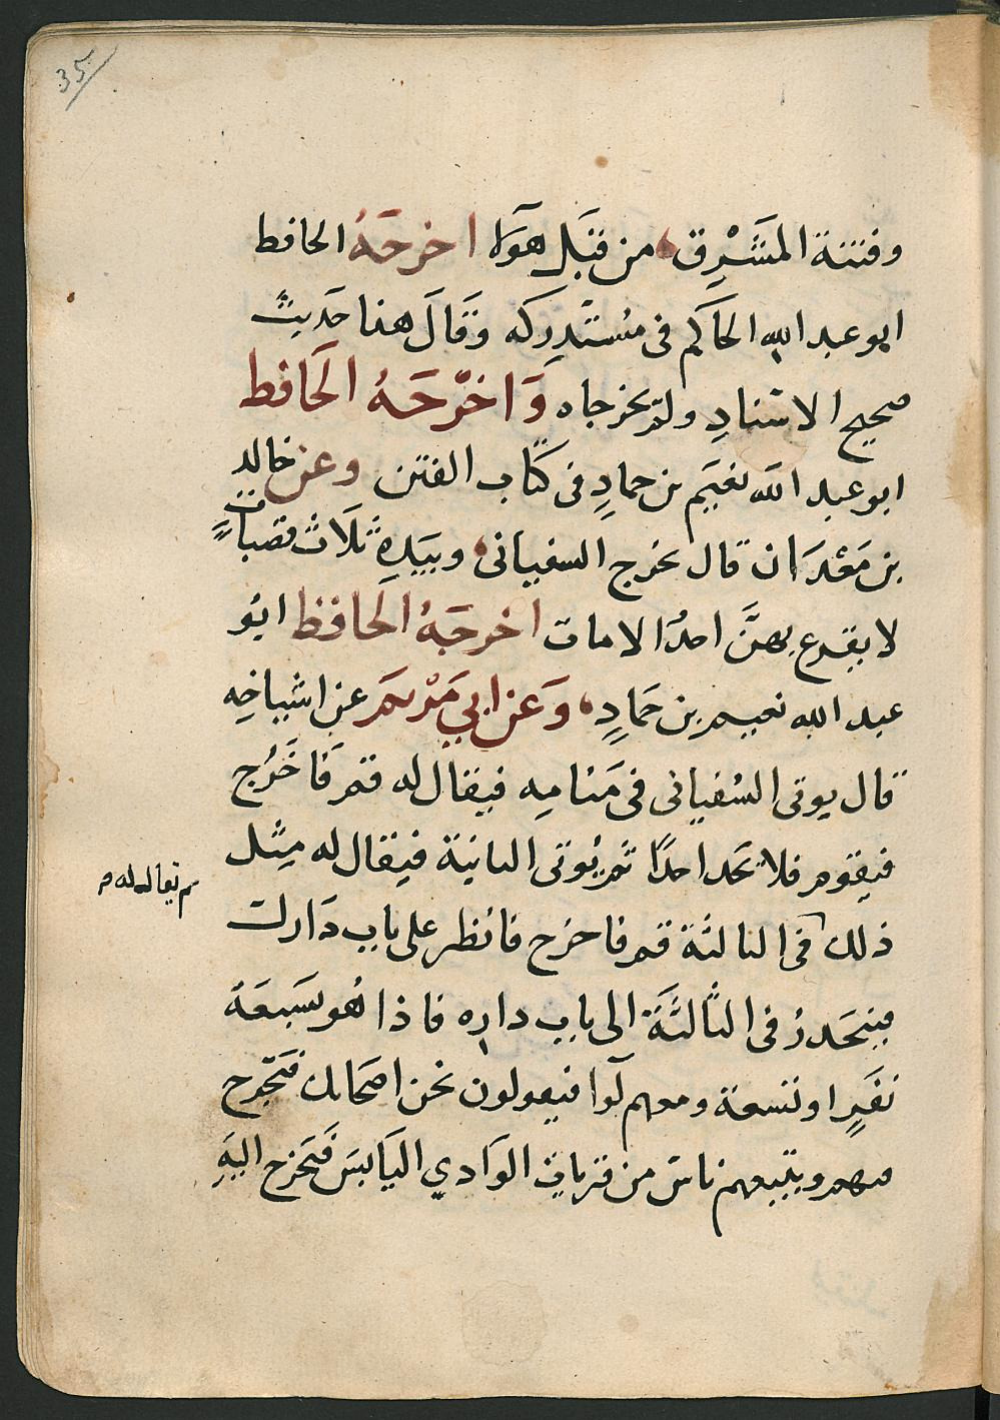 35
وفتنة المَشْرِق من قِبَل هَوَلا اخرجَهُ الحافط
ابو عبد الله الحاكم فى مسْتَدرِكه وَقَالَ هذا حَديثٌ
صحيح الاسْنادِ ولم يخرجاه وَاخرّجَهُ الحَافط
ابو عبد الله نعَيَم بن حمادٍ فى كتاب الفتن وعن خالد
بن مَعْدَان قال يخرج السفيانى وبيَدِهِ ثلَاثُ قصباتٍ
لا يقرع بهنَّ احدًا الا مات اخرجَهُ الحَافظ ابُو
عبد الله نعيم بن حَمادٍ وَعَن ابي مَرْيمَ عن اشياخِه
قال يوتى السُفيانى فى مَنامِه فيقال له قم فَاخَرُج
فيقوم فلا يَجد احدًا ثم يُوتى الثانية فيقال له مِثل
ذلك فى الثالثة قم فاخرج فانظر على باب دَارك
فينحَدرُ فى الثَالثَة الى باب داره فاذا هُو بسَبعَة
نفَرٍ او تسعة ومعهم لوا فيقولون نحن اصحَابك فيَخْرج
معهم ويتبعهم ناسٌ من قريات الوَادي اليَابسَ فيَخرج اليَهِ
ثم يقال له